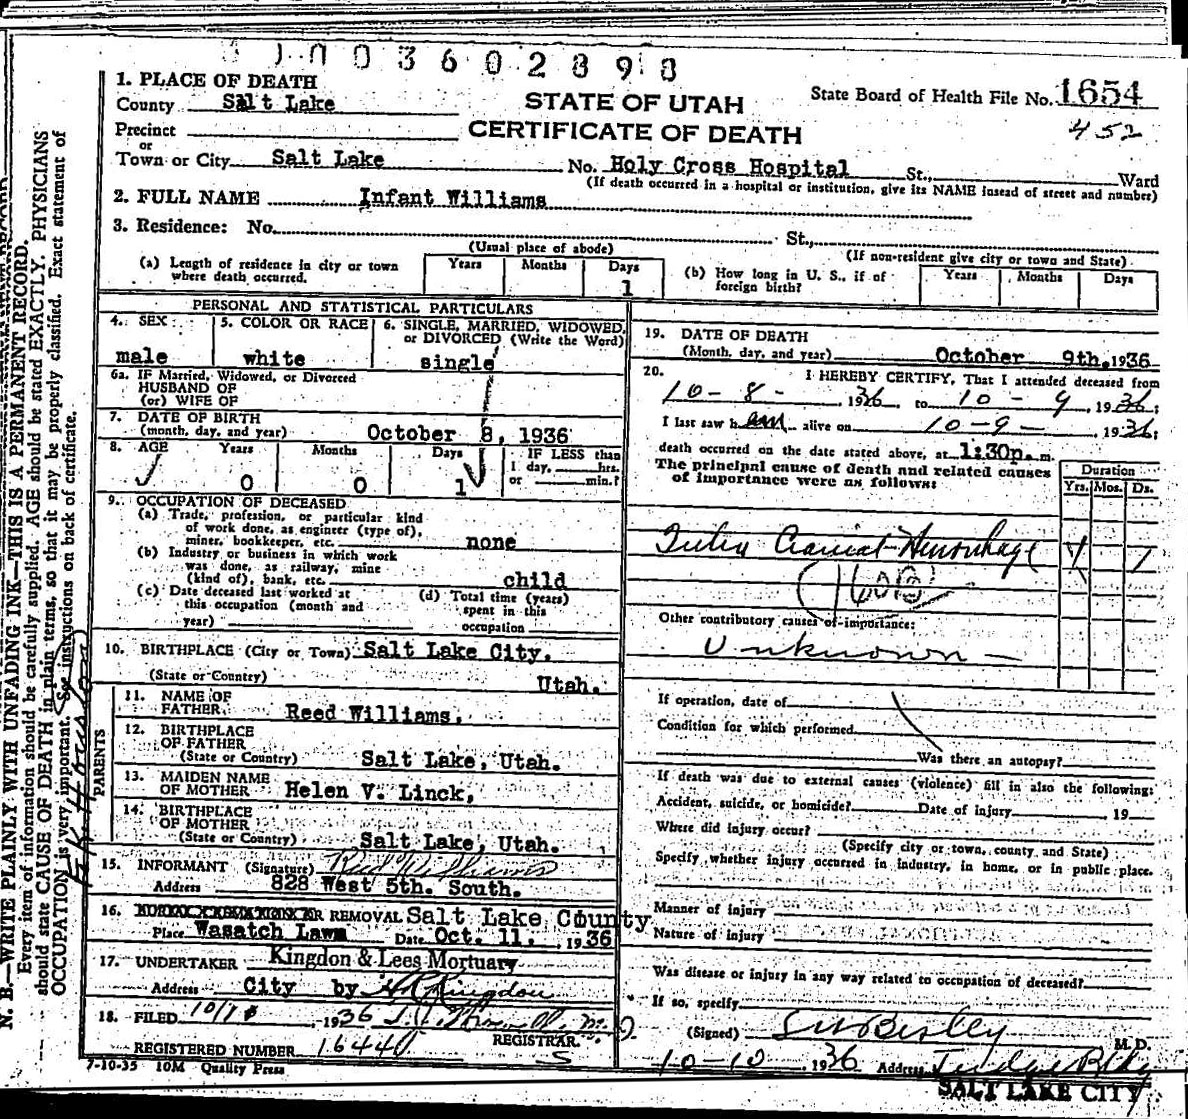 1003602898
1. PLACE OF DEATH
County Salt Lake
STATE OF UTAH
State Board of Health File No. 1654
Precinct
CERTIFICATE OF DEATH
452
or
Town or City Salt Lake No. Holy Cross Hospital St., Ward
(If death occurred in a hospital or institution, give its NAME insead of street and number)
2. FULL NAME Infant Williams
3. Residence: No. St.,
(Usual place of abode) (If non-resident give city or town and State)
(a) Length of residence in city or town where death occurred. Years Months Days 1
(b) How long in U. S., if of foreign birth? Years Months Days
PERSONAL AND STATISTICAL PARTICULARS
4. SEX male
5. COLOR OR RACE white
6. SINGLE, MARRIED, WIDOWED, or DIVORCED (Write the Word) single
6a. IF Married, Widowed, or Divorced
HUSBAND OF
(or) WIFE OF
7. DATE OF BIRTH
(month, day, and year) October 8, 1936
8. AGE Years 0 Months 0 Days 1 IF LESS than
1 day, hrs.
or min.?
9. OCCUPATION OF DECEASED
(a) Trade, profession, or particular kind
of work done, as engineer (type of),
miner, bookkeeper, etc. none
(b) Industry or business in which work
was done, as railway, mine
(kind of), bank, etc. child
(c) Date deceased last worked at
this occupation (month and
year)
(d) Total time (years)
spent in this
occupation
10. BIRTHPLACE (City or Town) Salt Lake City.
(State or Country) Utah.
PARENTS
11. NAME OF
FATHER Reed Williams.
12. BIRTHPLACE
OF FATHER
(State or Country) Salt Lake, Utah.
13. MAIDEN NAME
OF MOTHER Helen V. Linck,
14. BIRTHPLACE
OF MOTHER
(State or Country) Salt Lake, Utah.
15. INFORMANT (Signature) Reed Williams
Address 828 West 5th. South.
16. OR REMOVAL Salt Lake County
Place Wasatch Lawn Date Oct. 11. 1936
17. UNDERTAKER Kingdon & Lees Mortuary
Address City by Kingdon
18. FILED 1936
REGISTRAR.
REGISTERED NUMBER 16440
7-10-35 10M Quality Press
19. DATE OF DEATH
(Month, day, and year) October 9th. 1936
20. I HEREBY CERTIFY, That I attended deceased from
10-8- 1936 to 10-9 1936;
I last saw h alive on 10-9- 1936;
death occurred on the date stated above, at 1:30p. m.
The principal cause of death and related causes
of importance were as follows:
Duration
Yrs. Mos. Ds.
Cranial Hemorrhage 1
Other contributory causes of importance:
Unknown
If operation, date of
Condition for which performed
Was there an autopsy?
If death was due to external causes (violence) fill in also the following:
Accident, suicide, or homicide? Date of injury 19
Where did injury occur?
(Specify city or town, county and State)
Specify whether injury occurred in industry, in home, or in public place.
Manner of injury
Nature of injury
Was disease or injury in any way related to occupation of deceased?
If so, specify
(Signed) M. D.
10-10 1936 Address Judge Bldg
SALT LAKE CITY
N. B.—WRITE PLAINLY WITH UNFADING INK—THIS IS A PERMANENT RECORD.
Every item of information should be carefully supplied. AGE should be stated EXACTLY. PHYSICIANS
should state CAUSE OF DEATH in plain terms, so that it may be properly classified. Exact statement of
OCCUPATION is very important. See instructions on back of certificate.